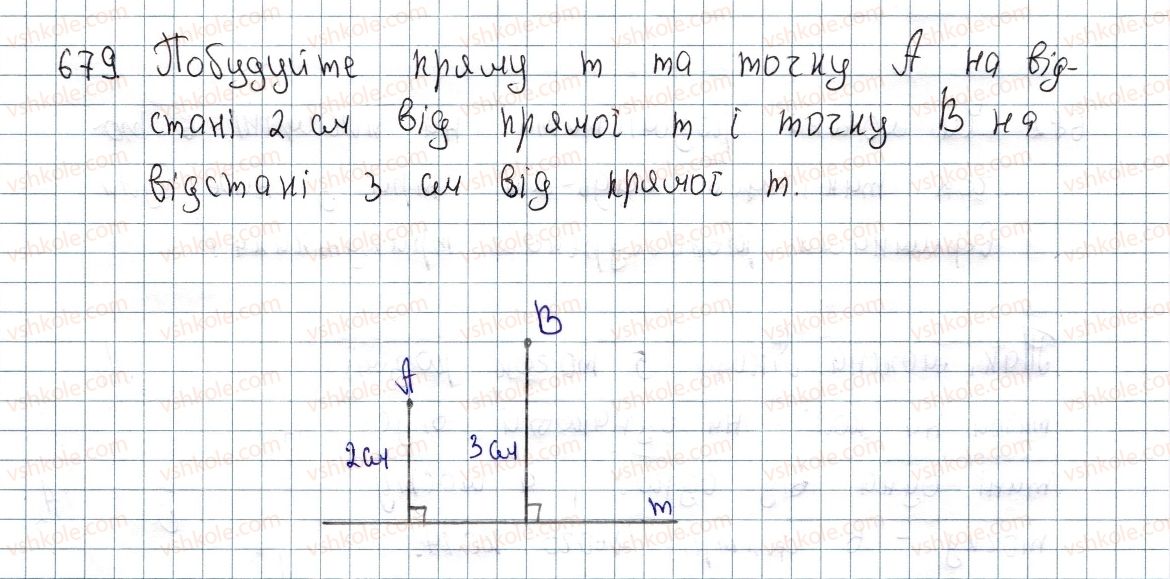 679 Побудуйте пряму m та точку A на від-
стані 2 см від прямої m і точку B на
відстані 3 см від прямої m.
B
A
2 см
3 см
m